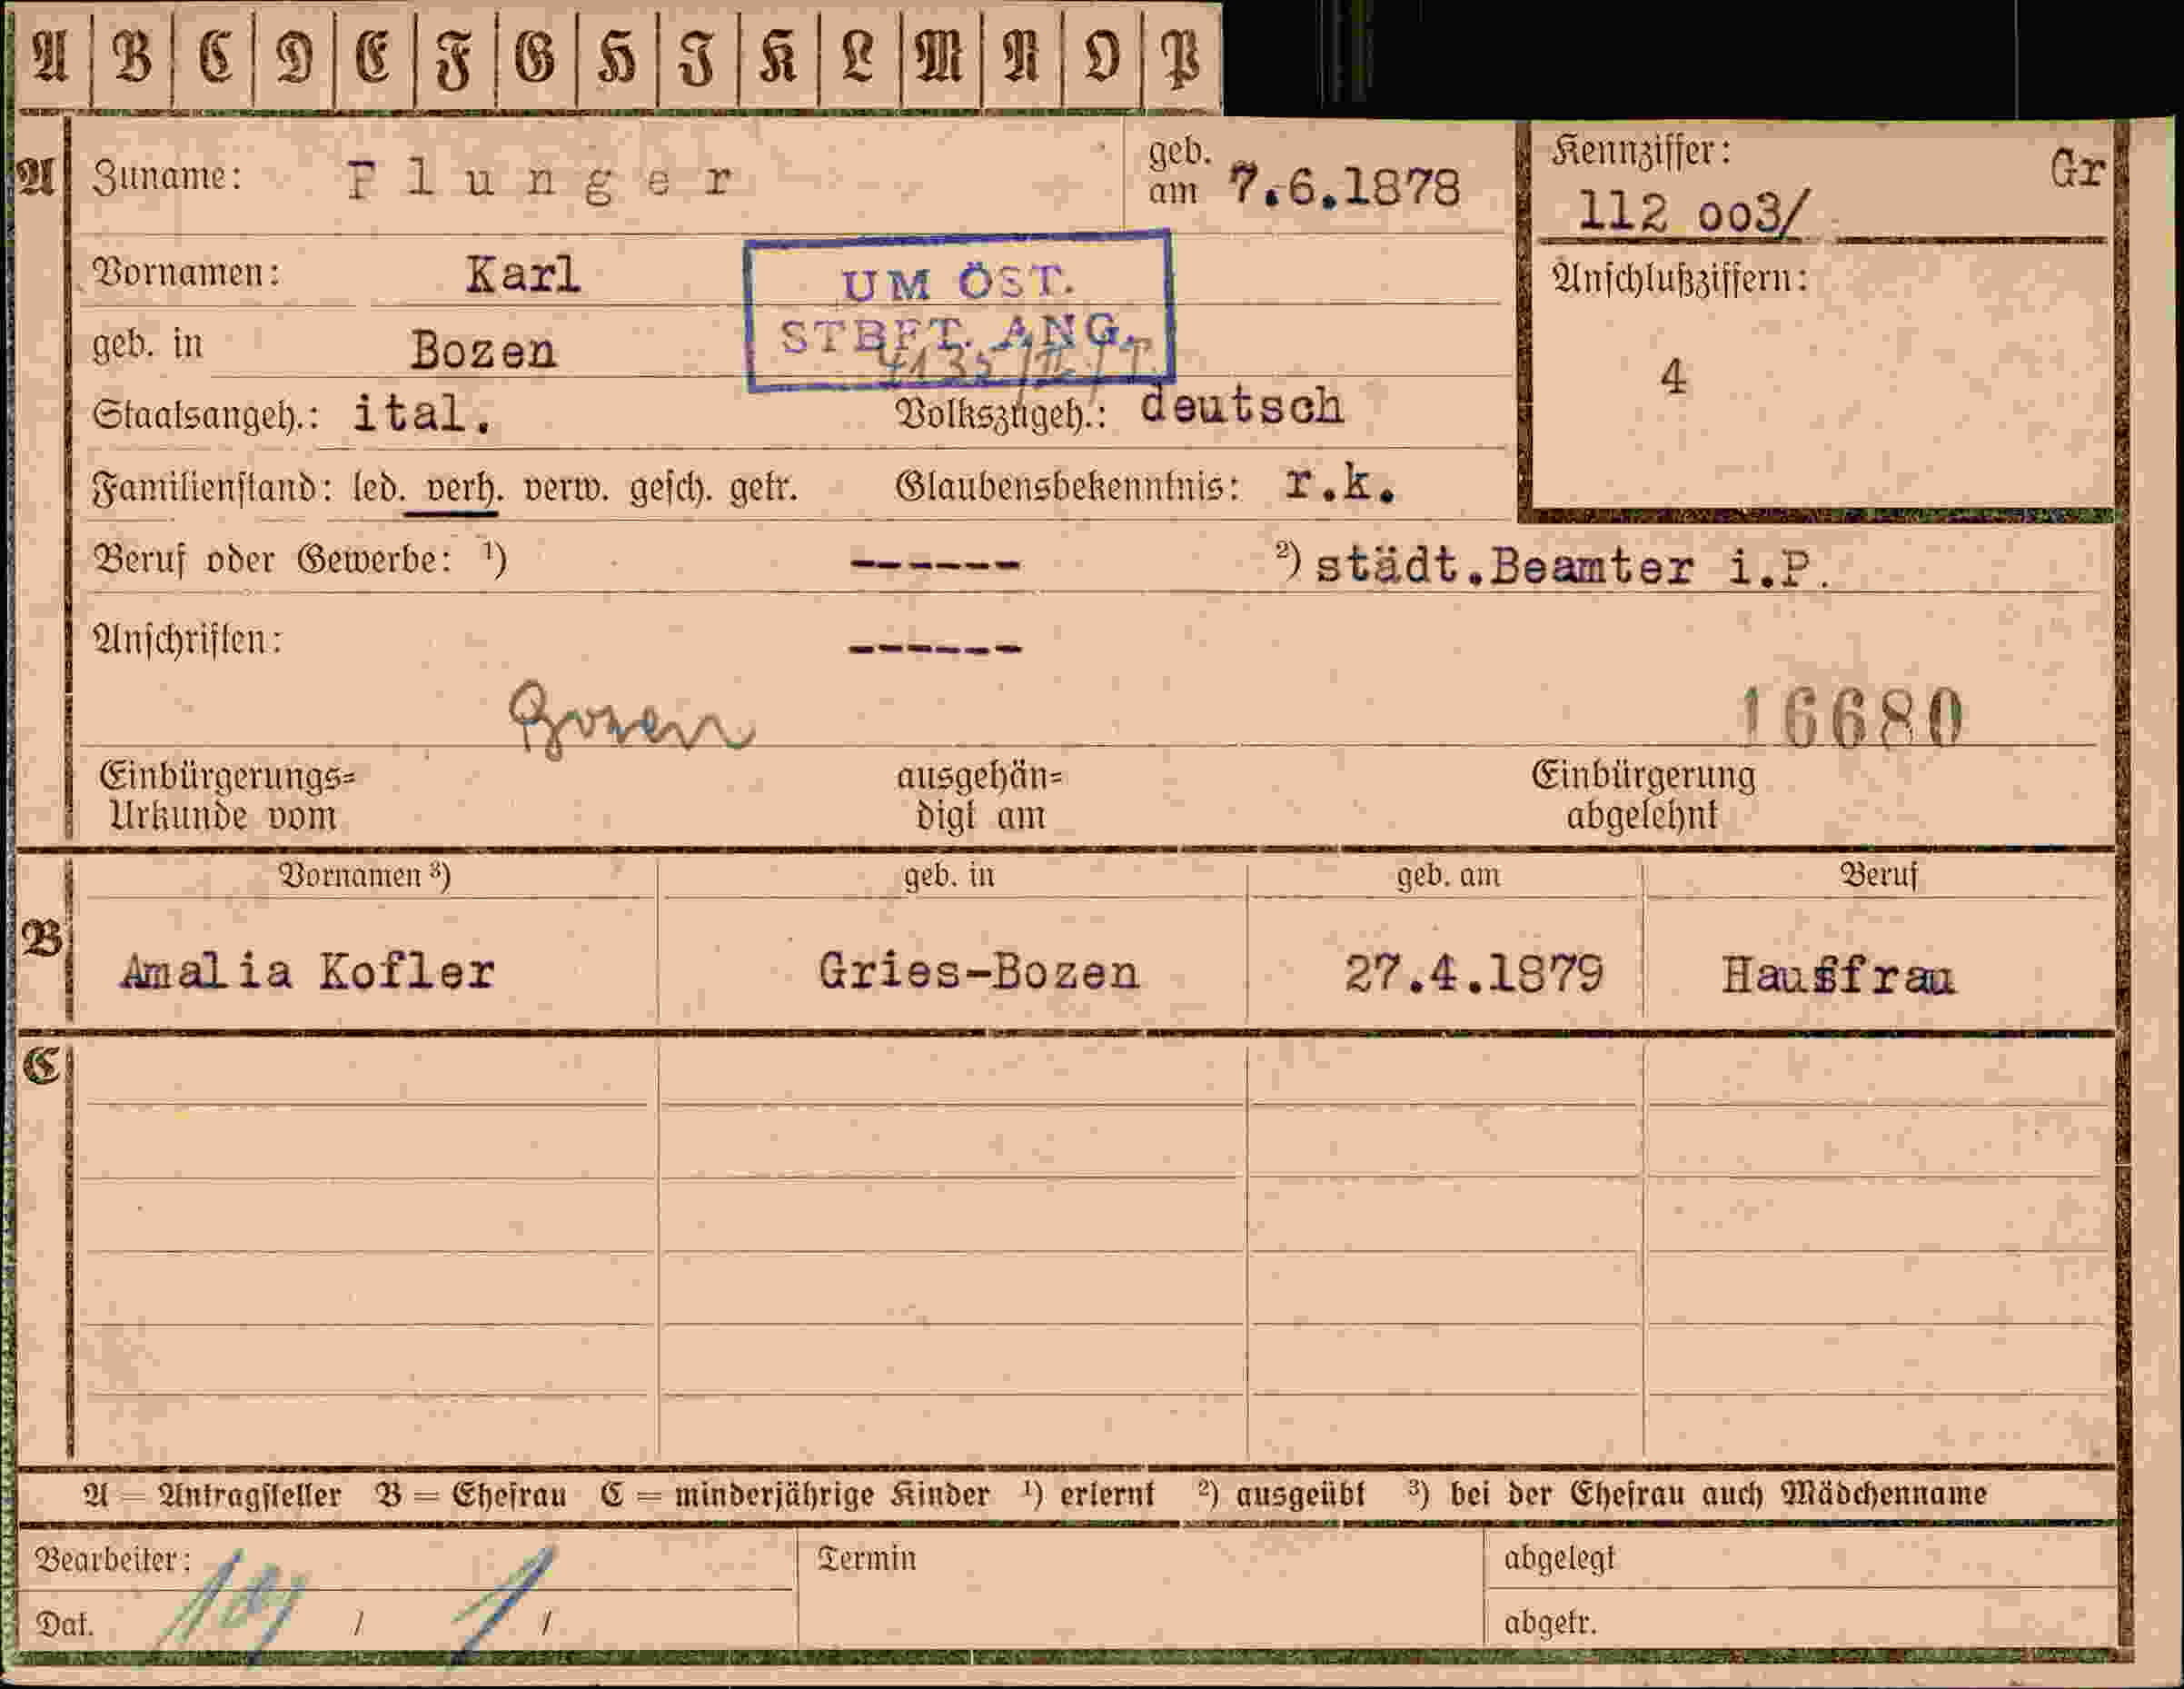 A B C D E F G H I K L M N O P
A Zuname: Plunger geb. am 7.6.1878 Kennziffer: Gr
112 oo3/
Vornamen: Karl UM ÖST. Anschlußziffern:
geb. in Bozen STBFT. ANG. 4
Staatsangeh.: ital. Volkszugeh.: deutsch
Familienstand: led. verh. verw. gesch. getr. Glaubensbekenntnis: r.k.
Beruf oder Gewerbe: ¹) ------ ²) städt.Beamter i.P.
Anschriften: ------
Bozen 16680
Einbürgerungs= ausgehän= Einbürgerung
Urkunde vom digt am abgelehnt
Vornamen ³) geb. in geb. am Beruf
B Amalia Kofler Gries-Bozen 27.4.1879 Hausfrau
C
A = Antragsteller B = Ehefrau C = minderjährige Kinder ¹) erlernt ²) ausgeübt ³) bei der Ehefrau auch Mädchenname
Bearbeiter: Termin abgelegt
Dat. / / abgetr.